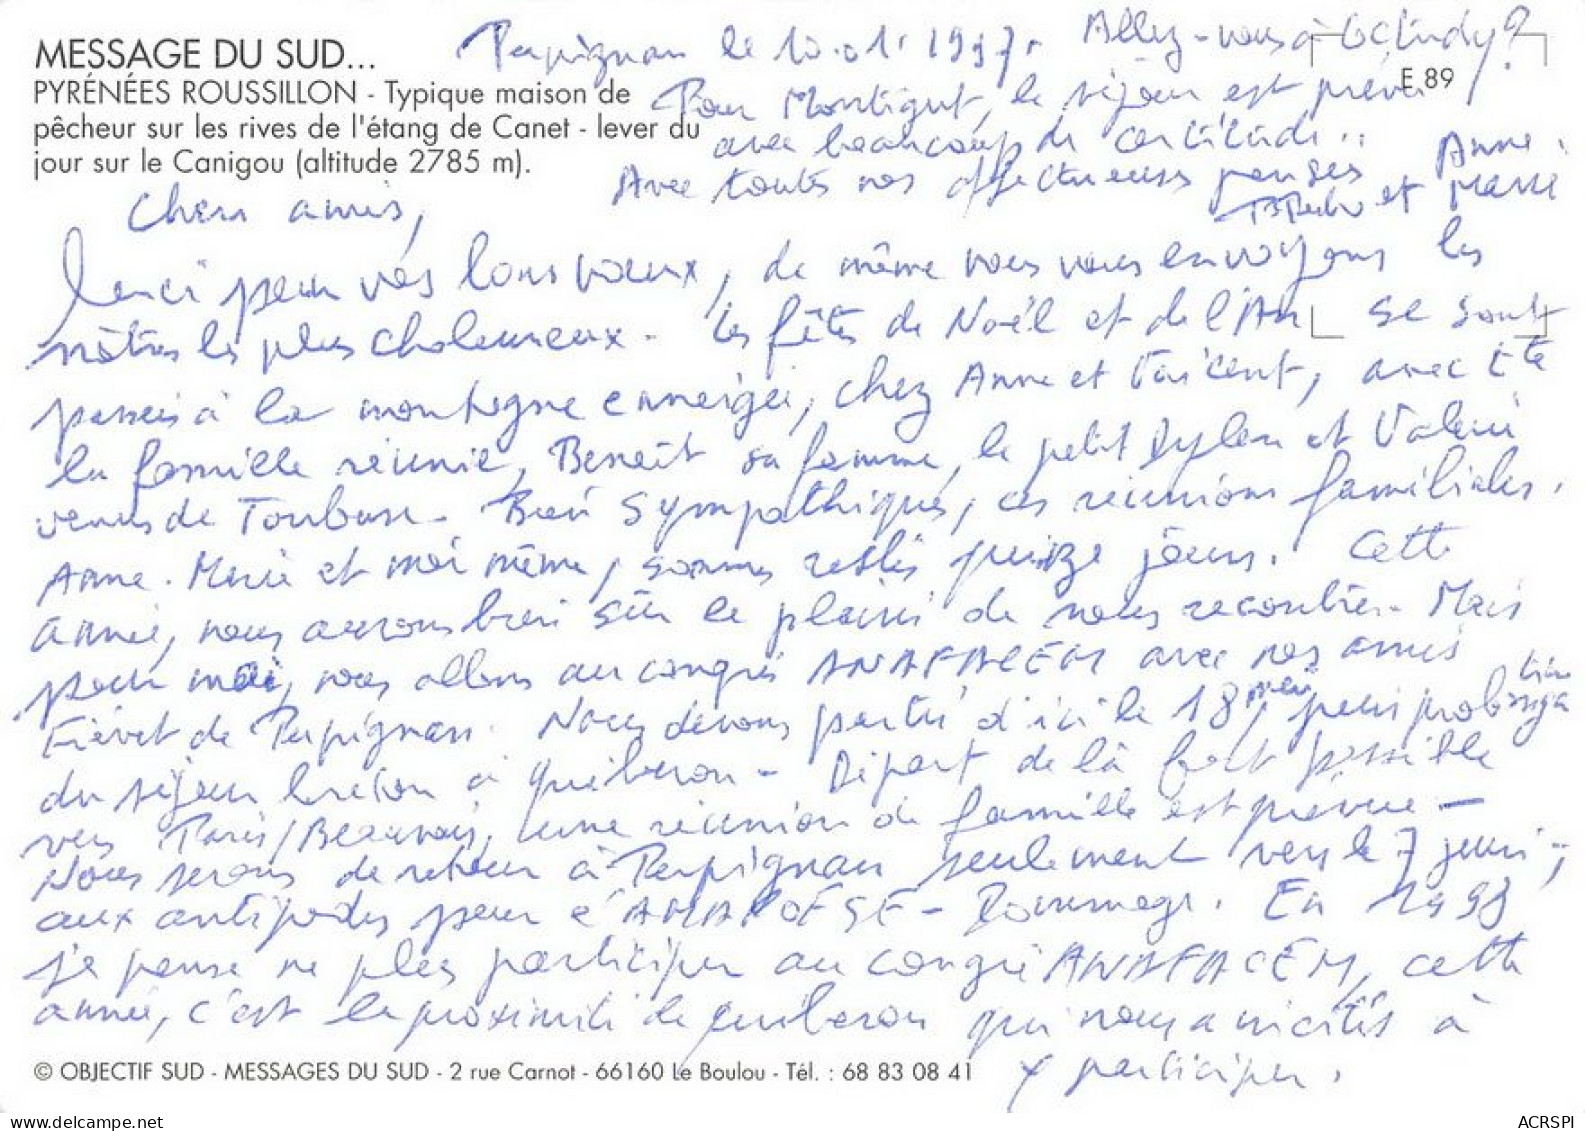 MESSAGE DU SUD...
PYRÉNÉES ROUSSILLON - Typique maison de
pêcheur sur les rives de l'étang de Canet - lever du
jour sur le Canigou (altitude 2785 m).
E 89
Perpignan le 10.01.1997. Allez-vous à ?
Pour Montigut, le séjour est prévu
avec beaucoup de certitude..
Avec toutes nos affectueuses pensées Anne.
et Marie
Chers amis,
Merci pour vos bons voeux, de même nous vous envoyons les
nôtres les plus chaleureux. Les fêtes de Noël et de l'An se sont
passées à la montagne enneigée, chez Anne et Vincent, avec tte
la famille réunie, Benoît sa femme, le petit Dylan et Valérie
venus de Toulouse. Bien sympathiques, ces réunions familiales.
Anne. Marie et moi même, sommes restés quinze jours. Cette
année, nous aurons bien sûr le plaisir de nous rencontrer. Mais
pour mai, nous allons au congrès ANAFACEM avec nos amis
Fiévet de Perpignan. Nous devons partir d'ici le 18 mai, puis prolongation
du séjour breton à Quiberon - Départ de là fort possible
vers Paris/Beauvais, une réunion de famille est prévue -
Nous serons de retour à Perpignan seulement vers le 7 juin ;
aux antipodes pour l' - Dommage. En 1998
je pense ne plus participer au congrès ANAFACEM, cette
année, c'est la proximité de Quiberon qui nous a incités à
y participer.
© OBJECTIF SUD - MESSAGES DU SUD - 2 rue Carnot - 66160 Le Boulou - Tél. : 68 83 08 41
www.delcampe.net
ACRSPI